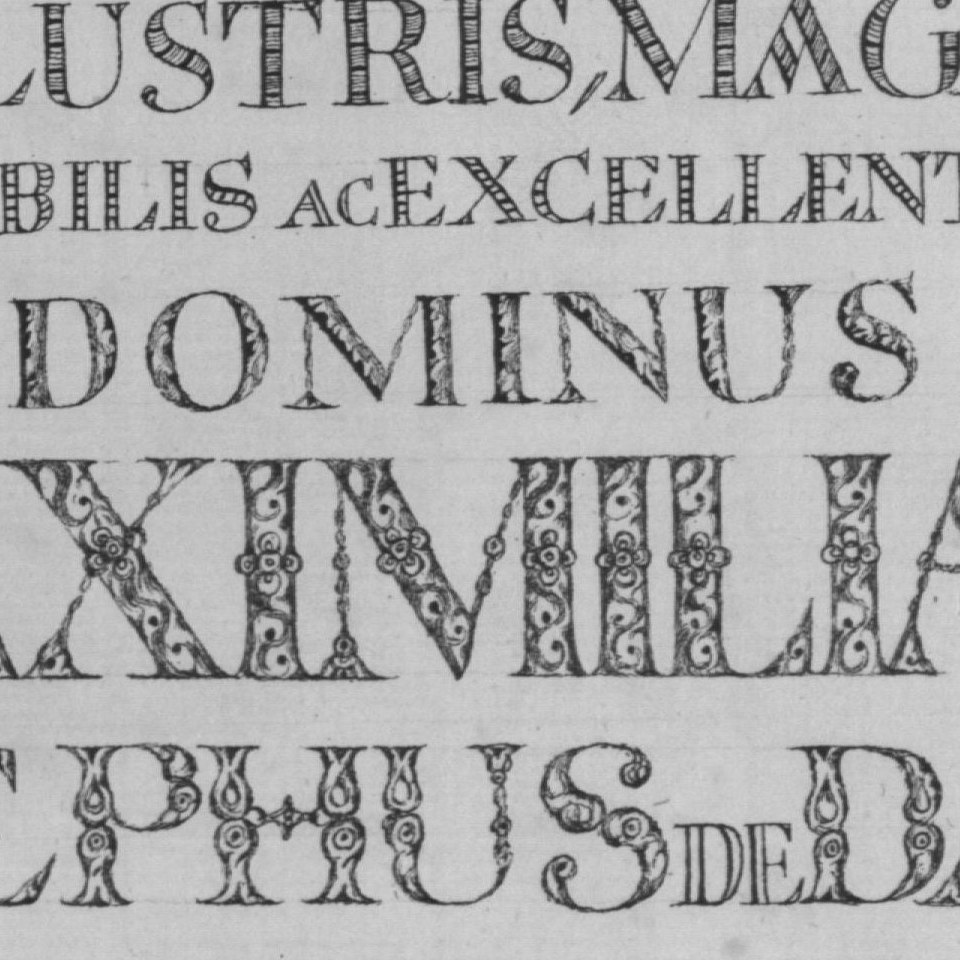 LUSTRIS, MAG
BILIS AC EXCELLENT
DOMINUS
XIMILIA
EPHUS DE DA